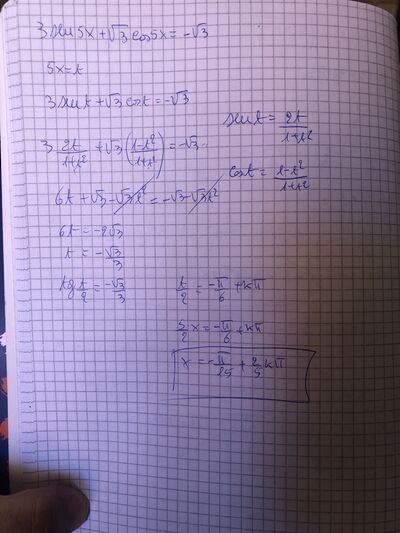 3 sin 5x + √3 cos 5x = -√3
5x = t
3 sin t + √3 cos t = -√3
sin t = 2t/(1+t²)
3 2t/(1+t²) + √3 ((1-t²)/(1+t²)) = -√3
cos t = (1-t²)/(1+t²)
6t + √3 - √3 t² = -√3 - √3 t²
6t = -2√3
t = -√3/3
tg t/2 = -√3/3
t/2 = -π/6 + kπ
5/2 x = -π/6 + kπ
x = -π/15 + 2/5 kπ